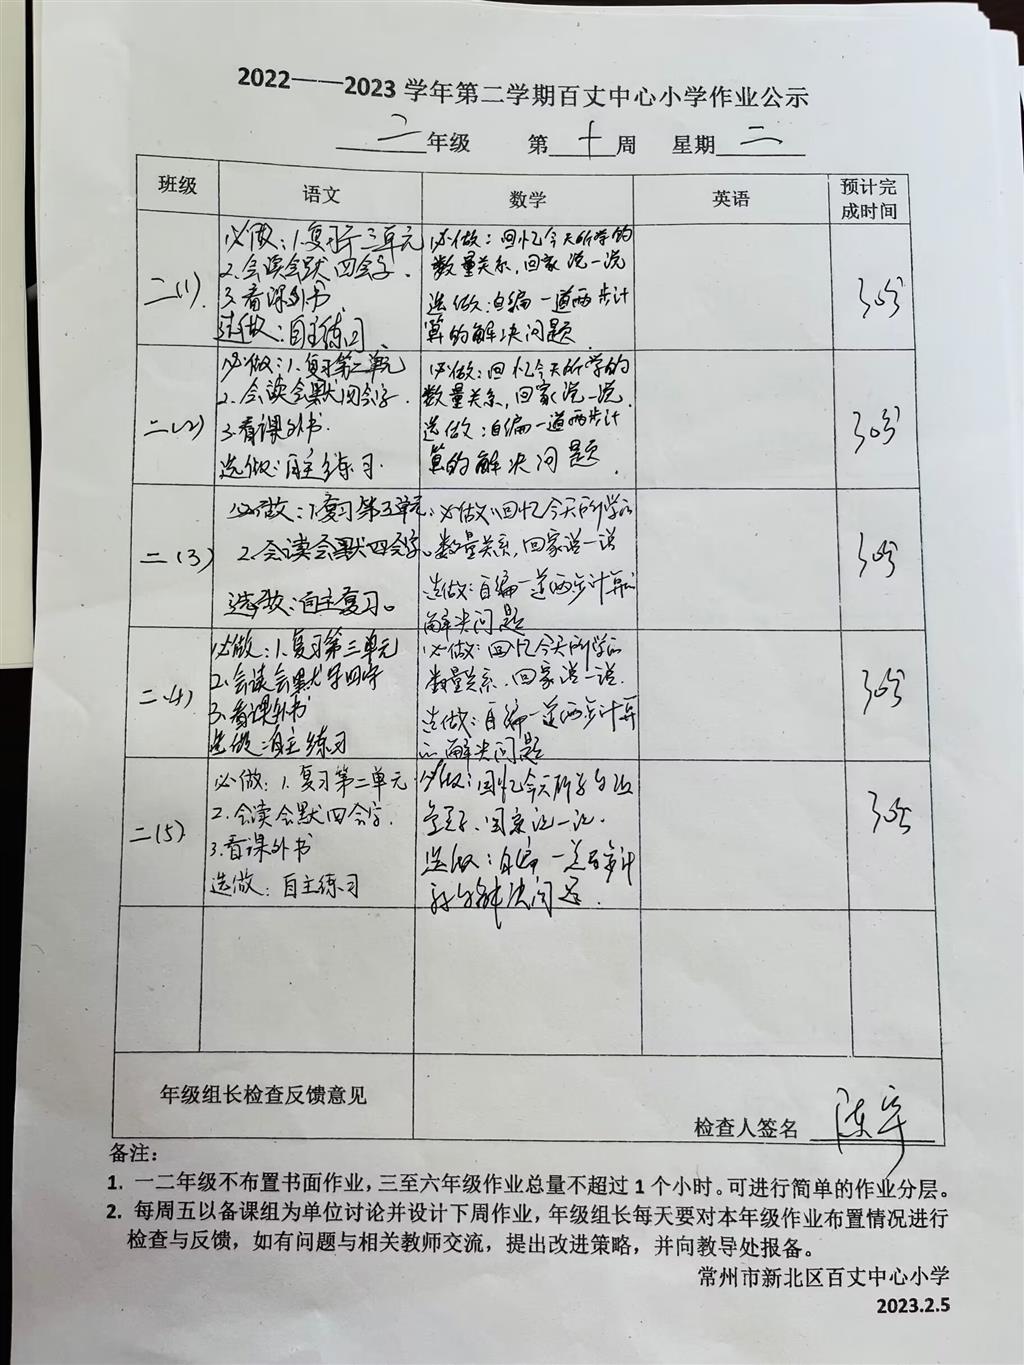 2022——2023 学年第二学期百丈中心小学作业公示
二年级 第十周 星期二
班级 语文 数学 英语 预计完
成时间
二(1)
必做：1.复习三单元
2.会读会默四会字.
3.看课外书
选做：自主练习
必做：回忆今天所学的
数量关系,回家说一说
选做：自编一道两步计
算的解决问题.
30分
二(2)
必做：1.复习第二单元
2.会读会默四会字.
3.看课外书.
选做：自主练习.
必做：回忆今天所学的
数量关系,回家说一说.
选做：自编一道两步计
算的解决问题.
30分
二(3)
必做：1.复习第五单元.
2.会读会默四会字.
选做：自主复习。
必做：回忆今天所学的
数量关系,回家说一说
选做：自编一道两步计算的
解决问题
30分
二(4)
必做：1.复习第三单元
2.会读会默
3.看课外书
选做：自主练习
必做：回忆今天所学的
数量关系.回家说一说.
选做：自编一道两步计算
的解决问题
30分
二(5)
必做：1.复习第二单元
2.会读会默四会字.
3.看课外书
选做：自主练习
必做：回忆今天所学
回家说一说.
选做：自编一道两步计
算的解决问题.
30分
年级组长检查反馈意见
检查人签名
备注：
1. 一二年级不布置书面作业，三至六年级作业总量不超过 1 个小时。可进行简单的作业分层。
2. 每周五以备课组为单位讨论并设计下周作业，年级组长每天要对本年级作业布置情况进行
检查与反馈，如有问题与相关教师交流，提出改进策略，并向教导处报备。
常州市新北区百丈中心小学
2023.2.5